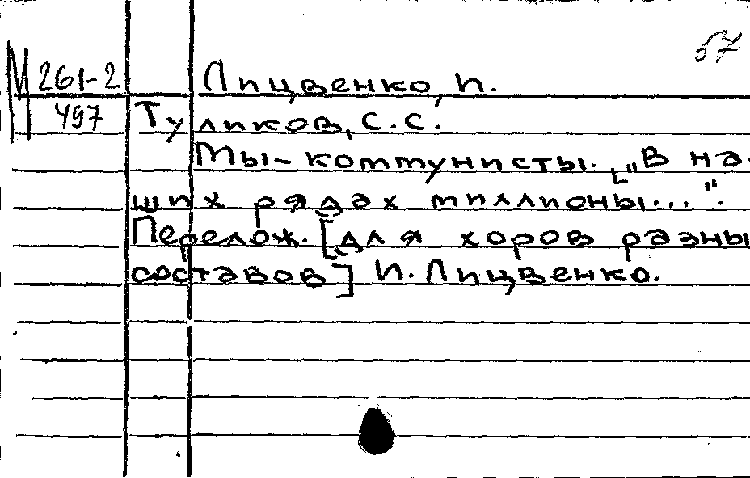 57
М 261-2 Лицвенко, И.
497 Туликов, С.С.
Мы - коммунисты. ["В на-
ших рядах миллионы..."].
Перелож. [для хоров разны
составов] И. Лицвенко.